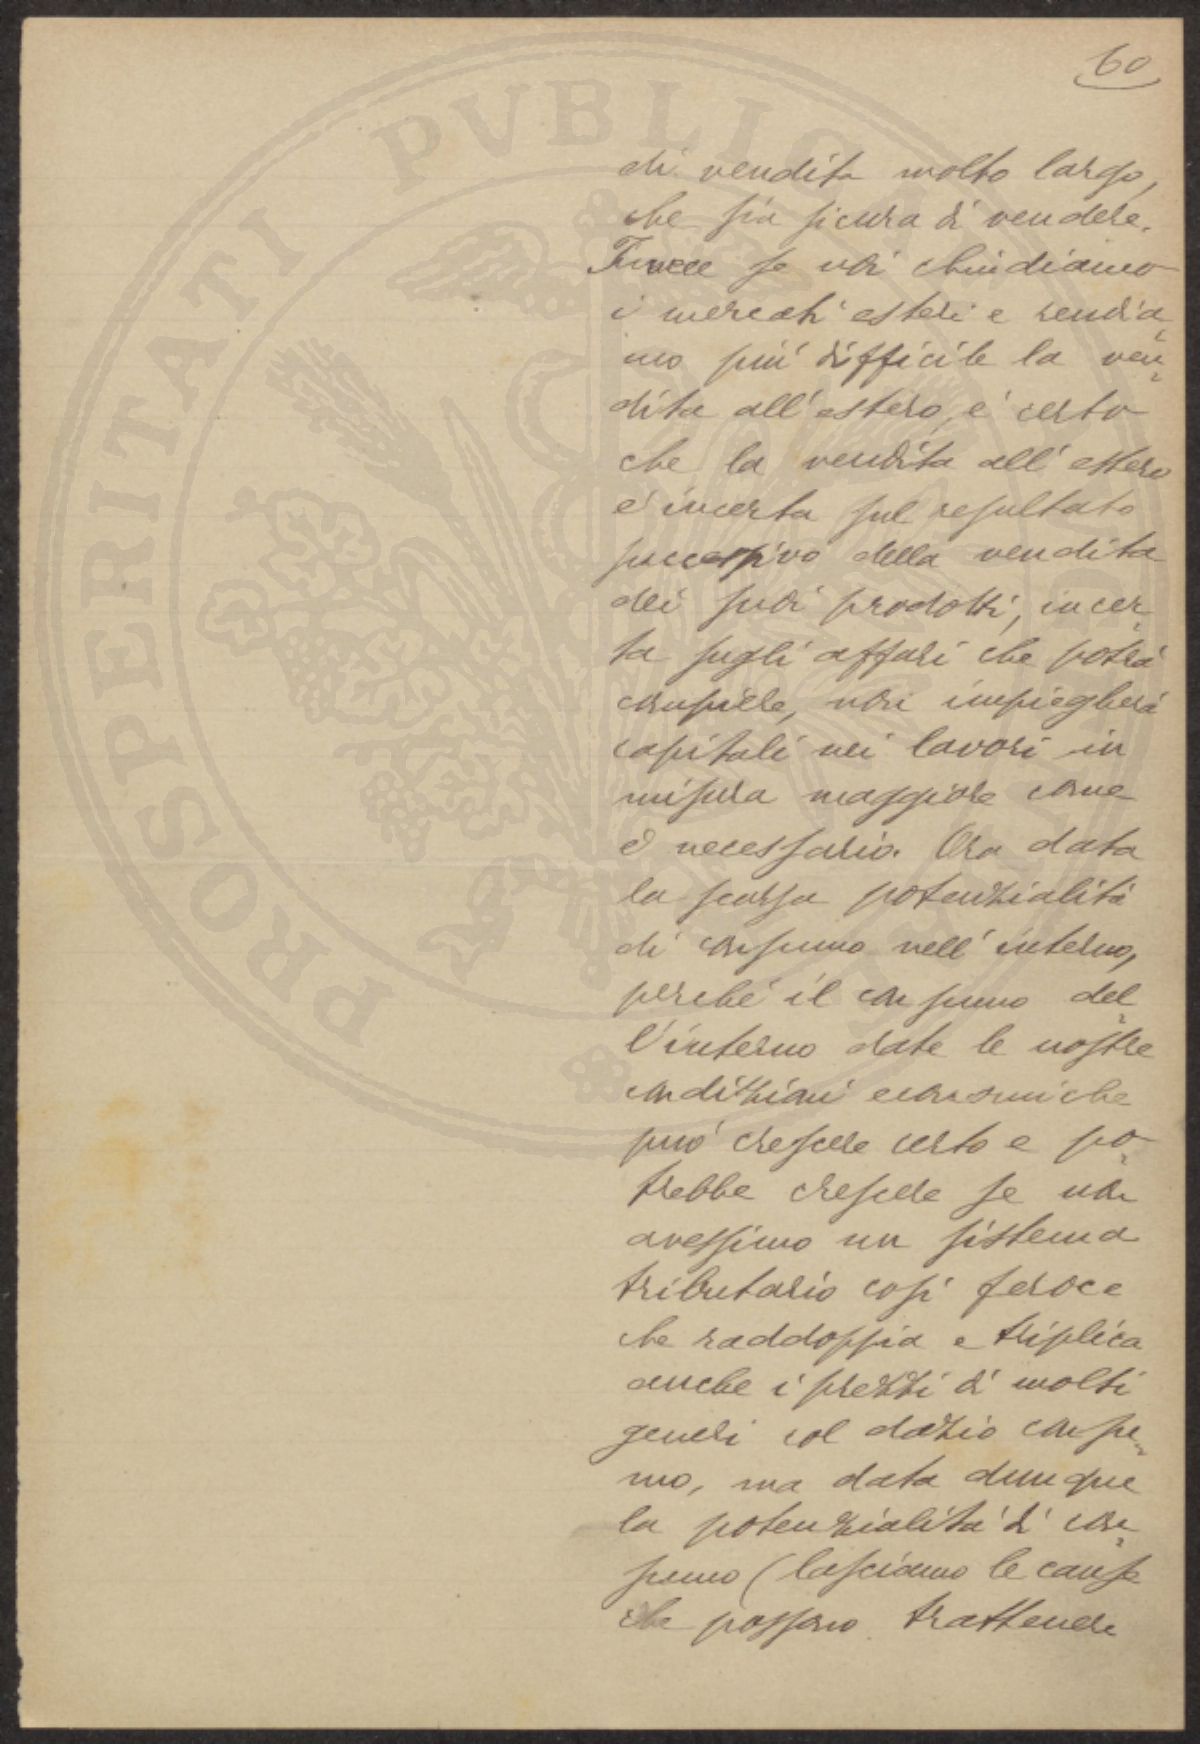 60
di vendita molto largo,
che sia sicura di vendere.
Invece se noi chiudiamo
i mercati esteri e rendia-
mo più difficile la ven-
dita all'estero, e' certo
che la vendita all'estero
e' incerta sul resultato
successivo della vendita
dei suoi prodotti, incer-
ta sugli affari che potrà
compiere, non impiegherà
capitali nei lavori in
misura maggiore come
è necessario. Ora data
la scarsa potenzialità
di consumo nell'interno,
perché il consumo del-
l'interno date le nostre
condizioni economiche
può crescere certo e po-
trebbe crescere se non
avessimo un sistema
tributario così feroce
che raddoppia e triplica
anche i prezzi di molti
generi col dazio consu-
mo, ma data dunque
la potenzialità di con-
sumo (lasciamo le cause
che possono trattenere
PROSPERITATI PVBLICAE